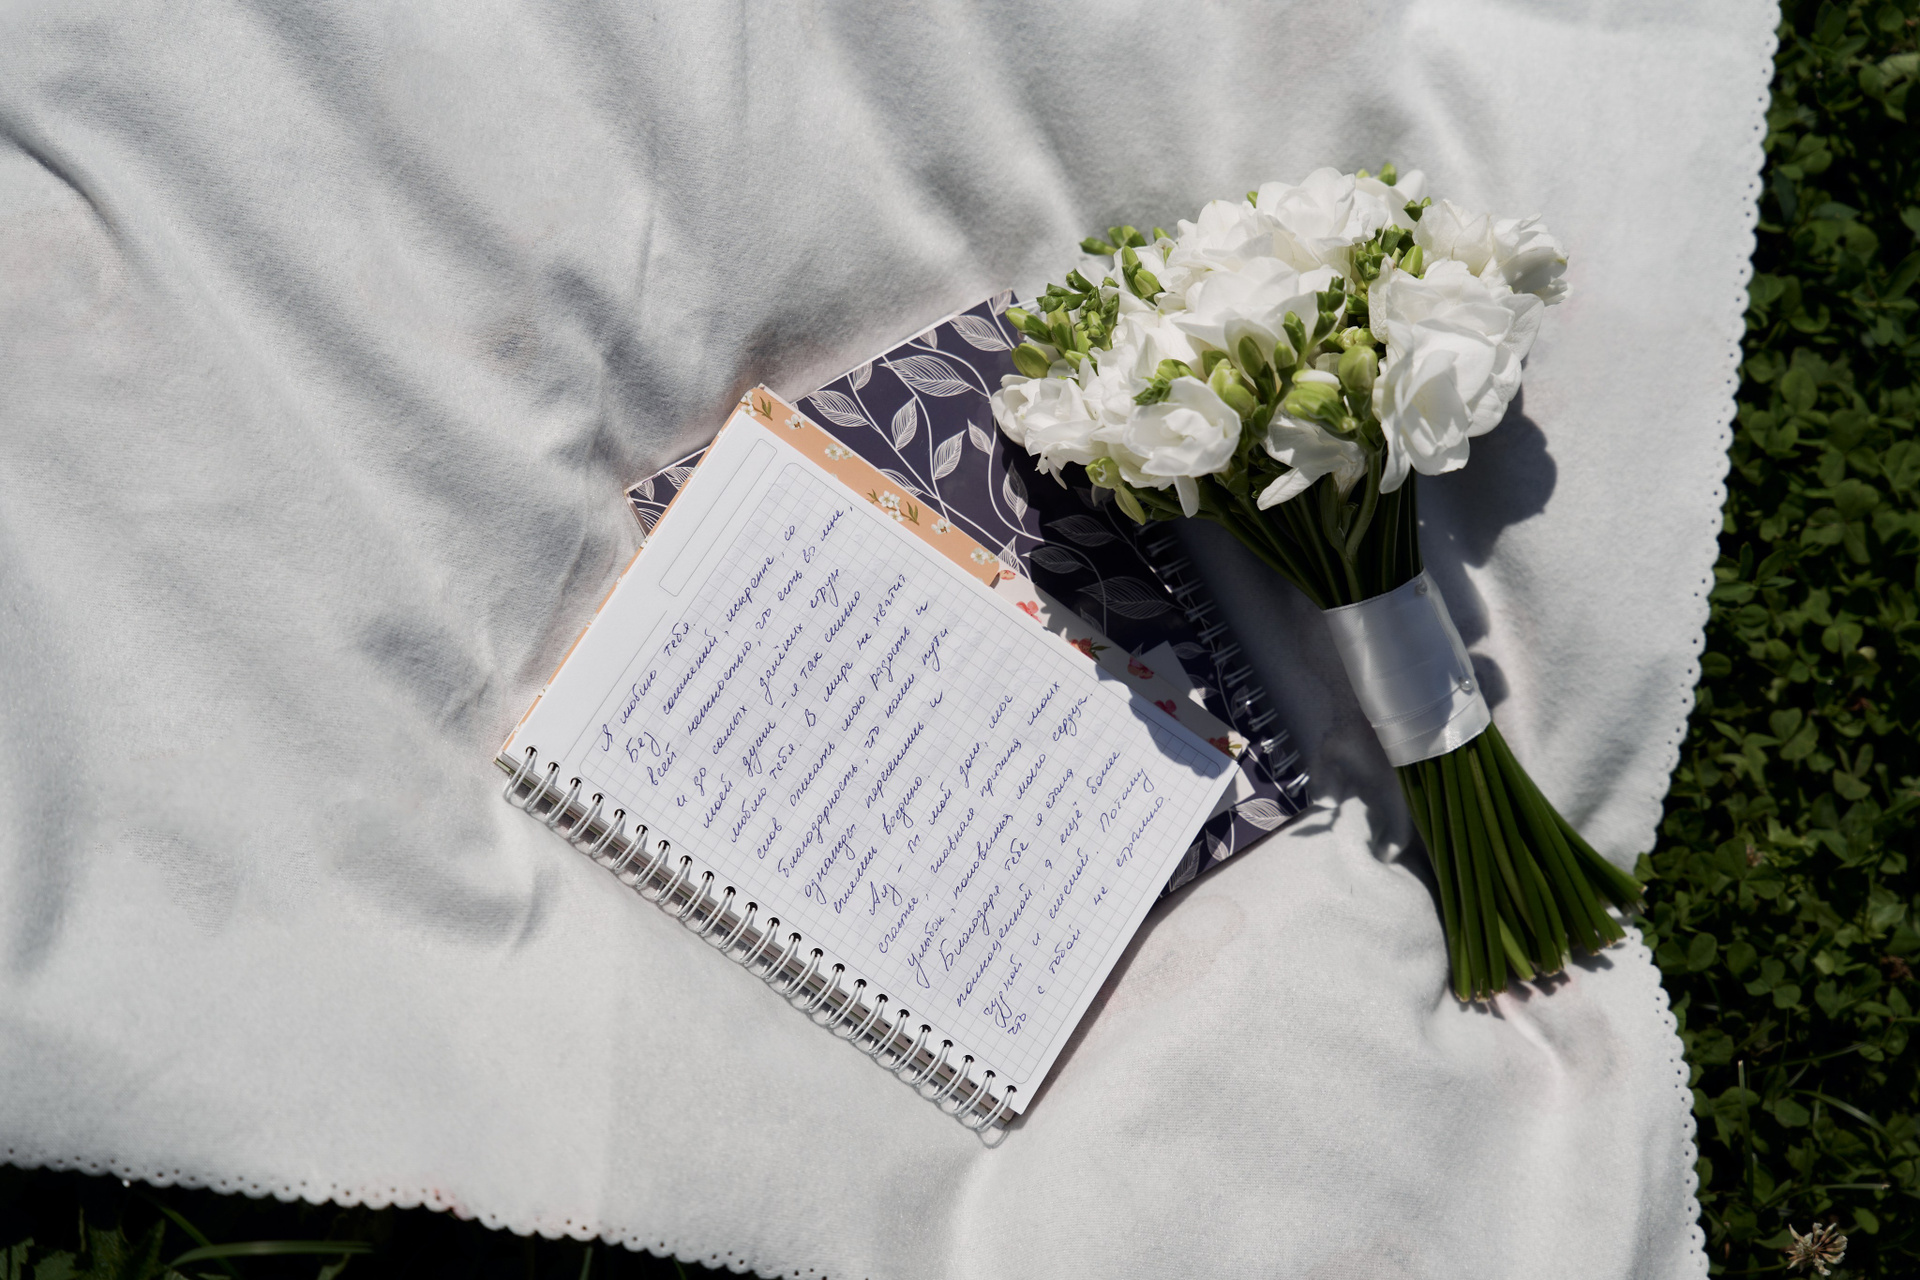 Я люблю тебя.
Без сомнений, искренне, со
всей нежностью, что есть во мне,
и до самых дальних струн
моей души - я так сильно
люблю тебя. В мире не хватит
слов описать мою радость и
благодарность, что наши пути
однажды пересеклись и
сплелись воедино.
Ты мой дом, мое
счастье, главная причина моих
улыбок, половинка моего сердца.
Благодаря тебе я стала
полноценной, я ещё более
чудной и смелой. Потому
что с тобой не страшно.